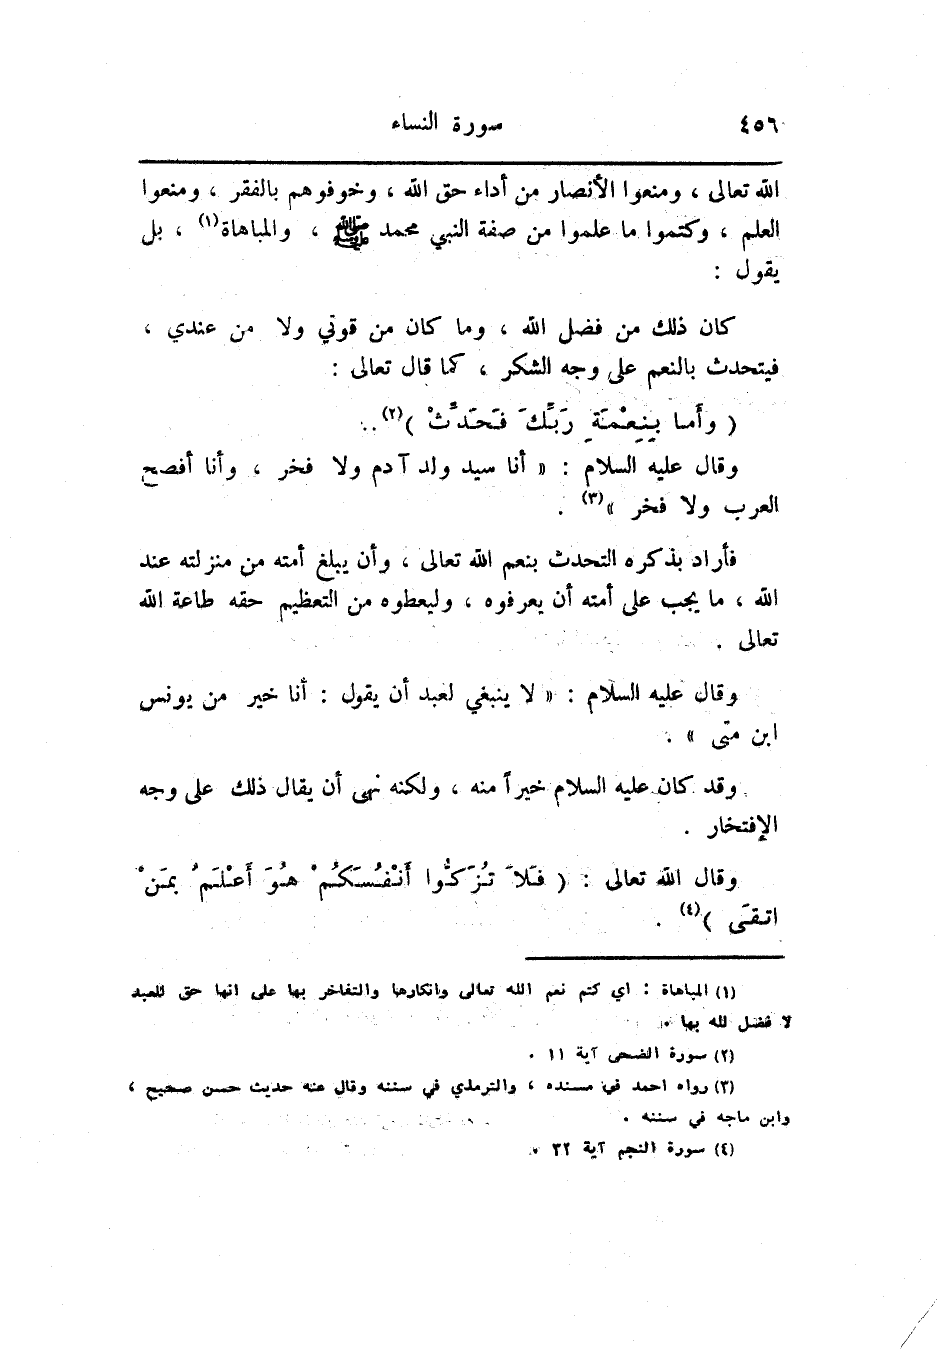 ٤٥٦
سورة النساء
الله تعالى ، ومنعوا الأنصار من أداء حق الله ، وخوفوهم بالفقر ، ومنعوا
العلم ، وكتموا ما علموا من صفة النبي محمد ﷺ ، والمباهاة(١) ، بل
يقول :
كان ذلك من فضل الله ، وما كان من قوتي ولا من عندي ،
فيتحدث بالنعم على وجه الشكر ، كما قال تعالى :
( وأما بِنِعْمَةِ رَبِّكَ فَحَدِّثْ )(٢) ..
وقال عليه السلام : « أنا سيد ولد آدم ولا فخر ، وأنا أفصح
العرب ولا فخر »(٣) .
فأراد بذكره التحدث بنعم الله تعالى ، وأن يبلغ أمته من منزلته عند
الله ، ما يجب على أمته أن يعرفوه ، وليعطوه من التعظيم حقه طاعة الله
تعالى .
وقال عليه السلام : « لا ينبغي لعبد أن يقول : أنا خير من يونس
ابن متى » .
وقد كان عليه السلام خيراً منه ، ولكنه نهى أن يقال ذلك على وجه
الإفتخار .
وقال الله تعالى : ( فَلَا تُزَكُّوا أَنْفُسَكُمْ هُوَ أَعْلَمُ بمَنْ
اتقَى )(٤) .
(١) المباهاة : اي كتم نعم الله تعالى وانكارها والتفاخر بها على انها حق للعبد
لا فضل لله بها .
(٢) سورة الضحى آية ١١ .
(٣) رواه احمد في مسنده ، والترمذي في سننه وقال عنه حديث حسن صحيح ،
وابن ماجه في سننه .
(٤) سورة النجم آية ٣٢ .